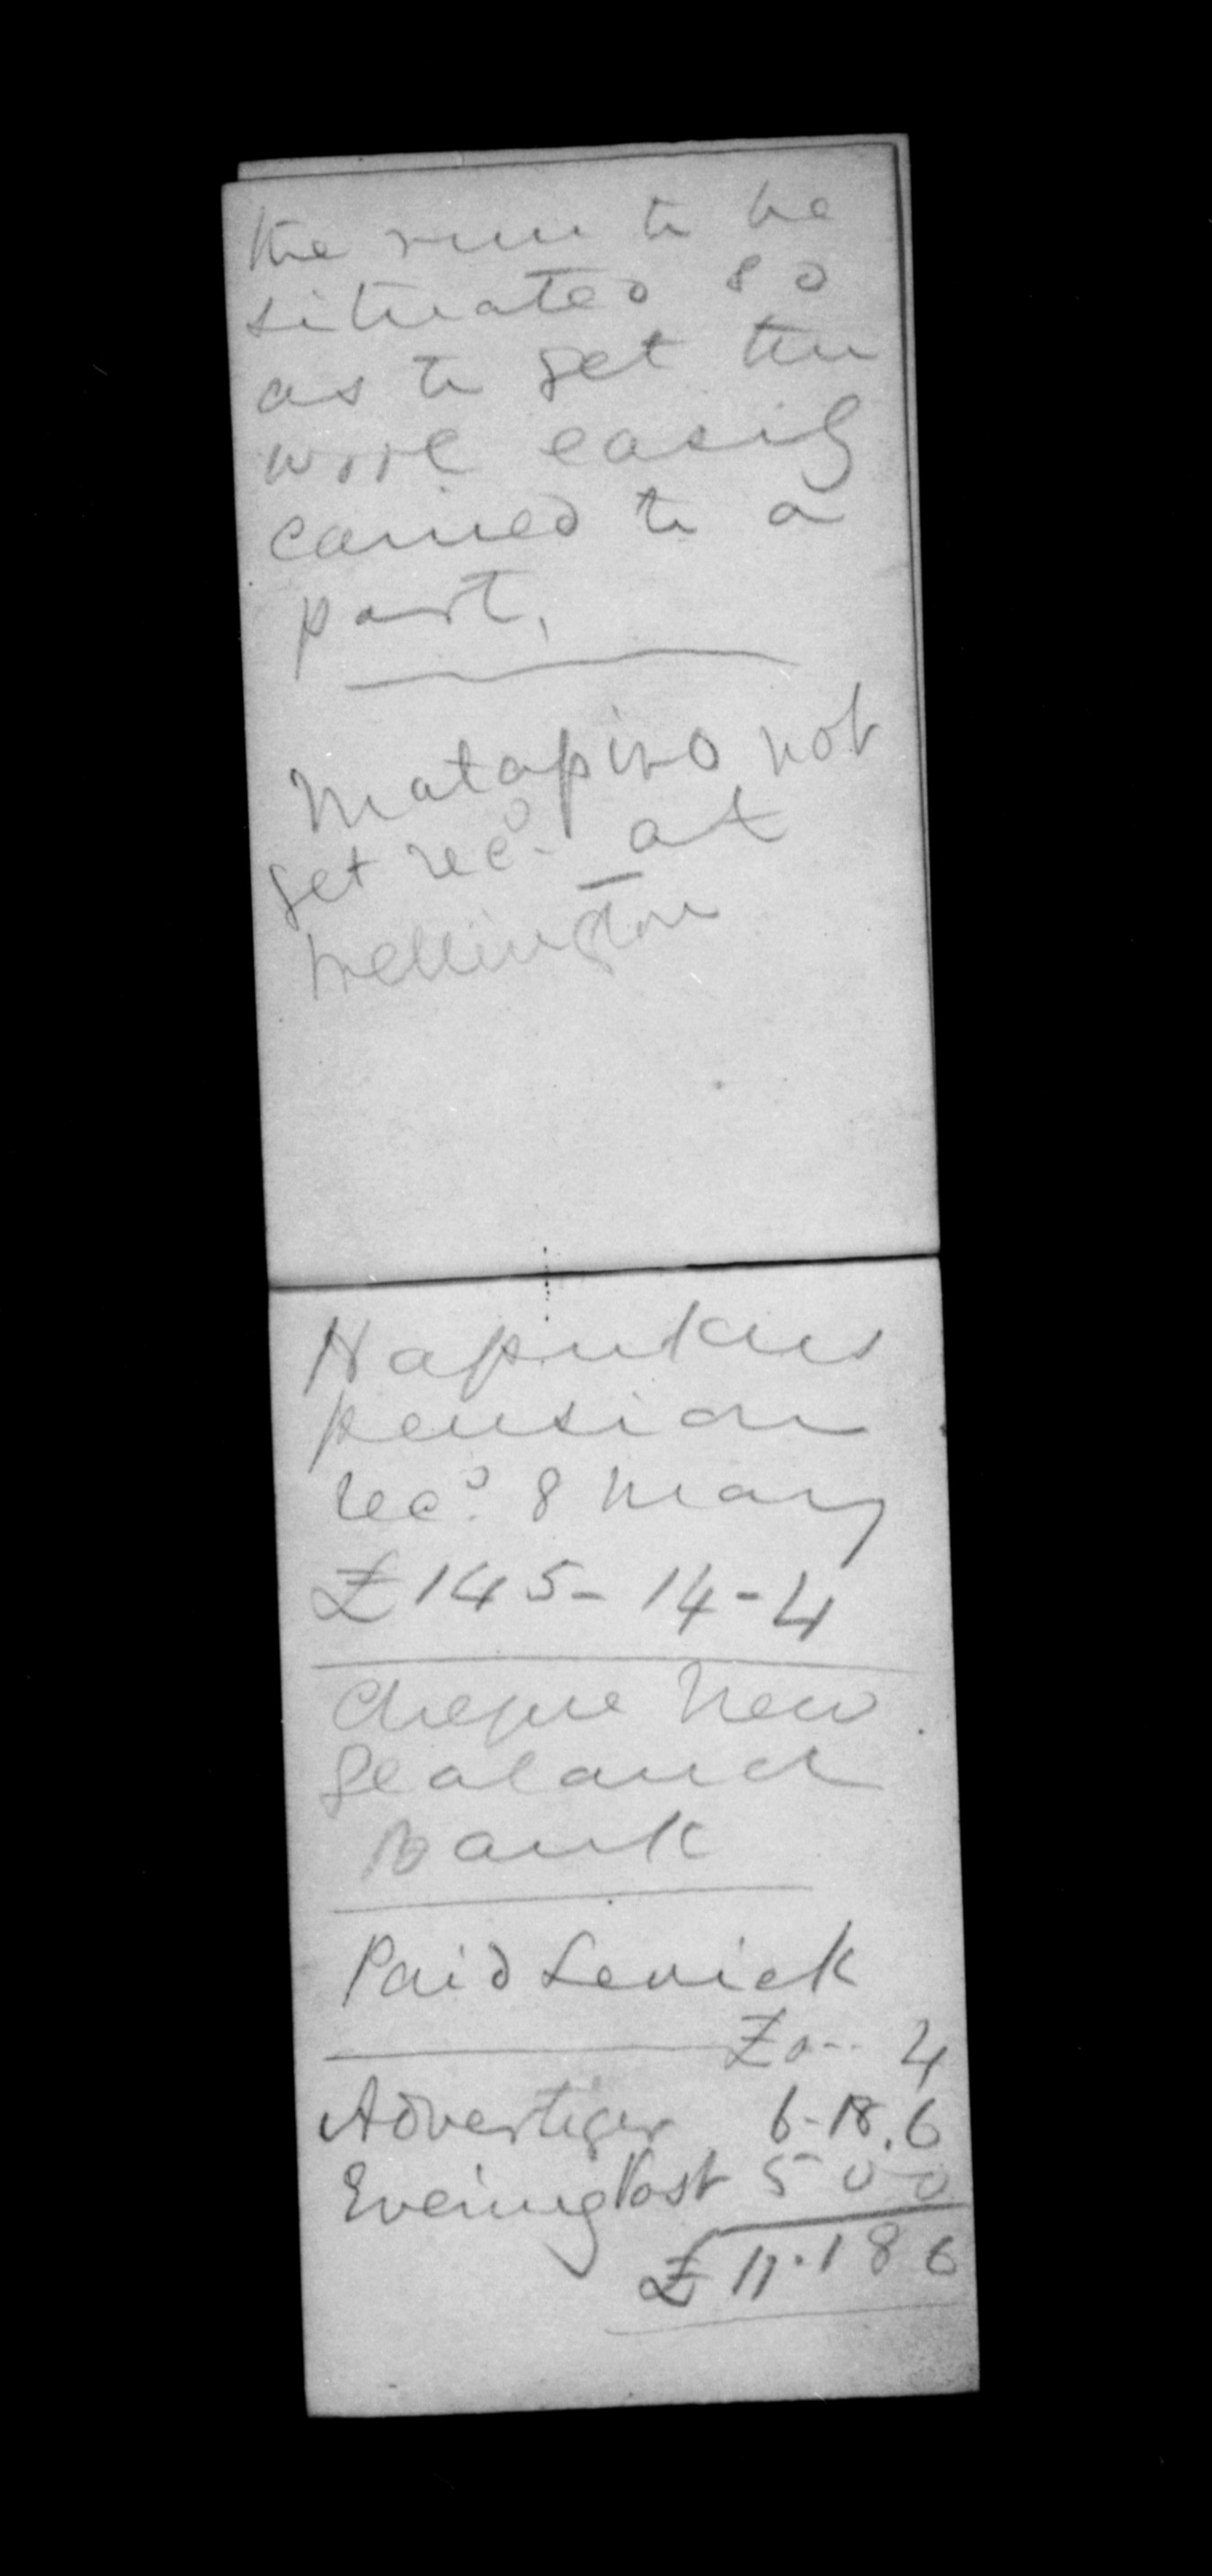 the run to be
situated so
as to get the
wool easily
carried to a
port.
Matapiro not
get recd. at
Wellington
Hapukus
pension
recd. 8 May
£145-14-4
Cheque New
Zealand
Bank
Paid Levick
£0-- 4
Advertiger 6-18.6
EveningPost 5 0 0
£11.18 6